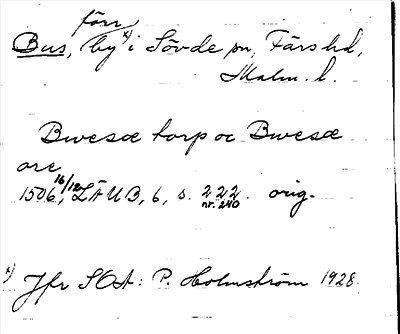 förr
Bus, by x) i Sövde sn, Färs hd,
Malm. l.
Bwesæ torp oc Bwesæ
ore
1506 16/12, LÄUB, 6, s. 222. orig.
nr. 240
x) Jfr SOA: P. Holmström 1928.